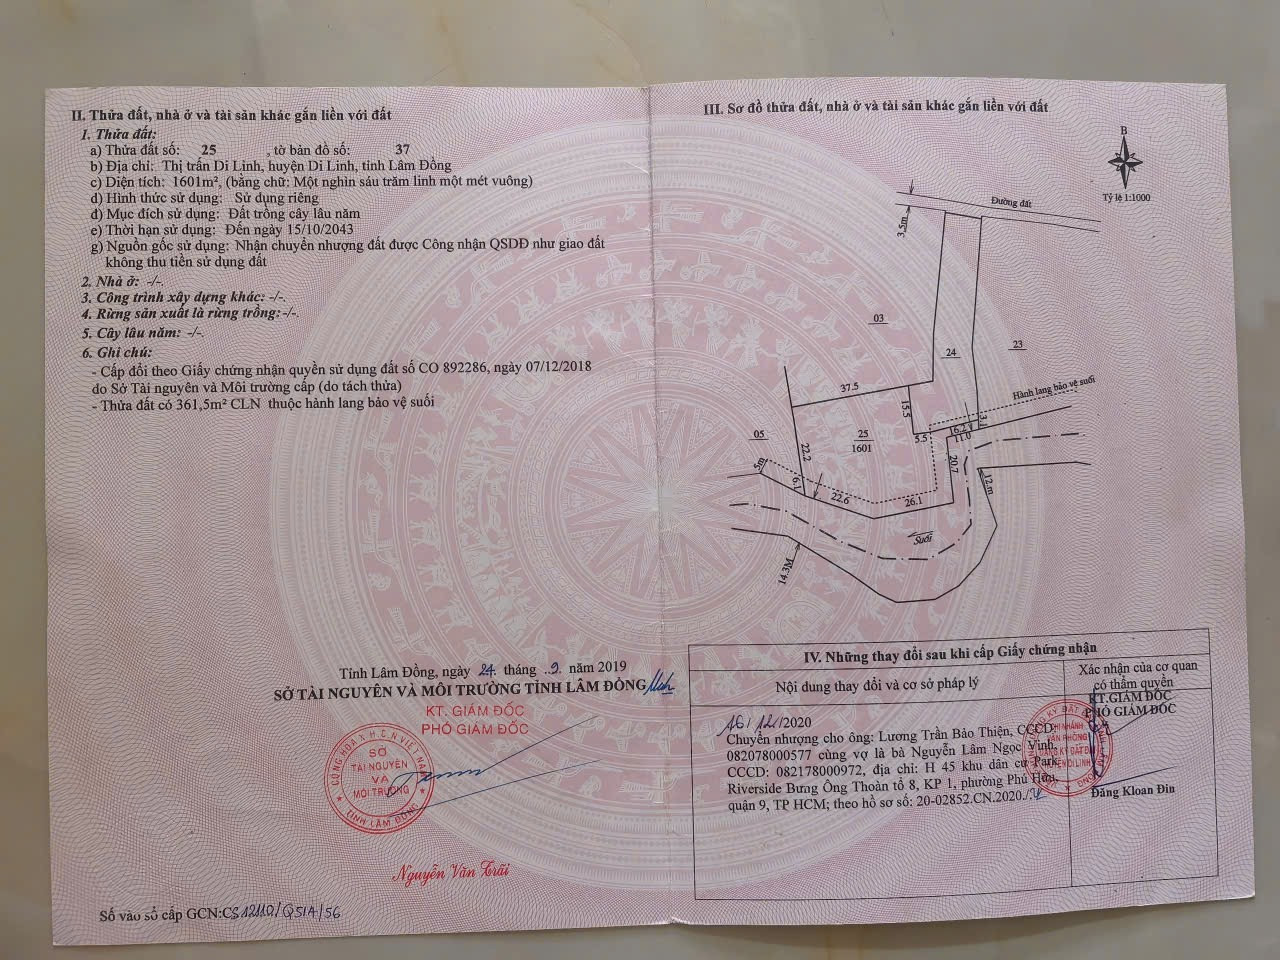 II. Thửa đất, nhà ở và tài sản khác gắn liền với đất
1. Thửa đất:
a) Thửa đất số: 25 , tờ bản đồ số: 37
b) Địa chỉ: Thị trấn Di Linh, huyện Di Linh, tỉnh Lâm Đồng
c) Diện tích: 1601m², (bằng chữ: Một nghìn sáu trăm linh một mét vuông)
d) Hình thức sử dụng: Sử dụng riêng
đ) Mục đích sử dụng: Đất trồng cây lâu năm
e) Thời hạn sử dụng: Đến ngày 15/10/2043
g) Nguồn gốc sử dụng: Nhận chuyển nhượng đất được Công nhận QSDĐ như giao đất
không thu tiền sử dụng đất
2. Nhà ở: -/-.
3. Công trình xây dựng khác: -/-.
4. Rừng sản xuất là rừng trồng: -/-.
5. Cây lâu năm: -/-.
6. Ghi chú:
- Cấp đổi theo Giấy chứng nhận quyền sử dụng đất số CO 892286, ngày 07/12/2018
do Sở Tài nguyên và Môi trường cấp (do tách thửa)
- Thửa đất có 361,5m² CLN thuộc hành lang bảo vệ suối
Tỉnh Lâm Đồng, ngày 24 tháng ..9. năm 2019
SỞ TÀI NGUYÊN VÀ MÔI TRƯỜNG TỈNH LÂM ĐỒNG
KT. GIÁM ĐỐC
PHÓ GIÁM ĐỐC
CỘNG HÒA X.H.C.N VIỆT NAM
SỞ
TÀI NGUYÊN
VÀ
MÔI TRƯỜNG
TỈNH LÂM ĐỒNG
Nguyễn Văn Trãi
Số vào sổ cấp GCN:CS12110/QSIA/56
III. Sơ đồ thửa đất, nhà ở và tài sản khác gắn liền với đất
B
Tỷ lệ 1:1000
Đường đất
3.5m
03
24
23
Hành lang bảo vệ suối
37.5
15.5
3.1
16.2
11.0
5.5
05
25
1601
22.2
20.7
5m
6.1
22.6
26.1
12.m
Suối
14.3M
IV. Những thay đổi sau khi cấp Giấy chứng nhận
Nội dung thay đổi và cơ sở pháp lý
Xác nhận của cơ quan
có thẩm quyền
16/12/2020
Chuyển nhượng cho ông: Lương Trần Bảo Thiện, CCCD:
082078000577 cùng vợ là bà Nguyễn Lâm Ngọc Vinh,
CCCD: 082178000972, địa chỉ: H 45 khu dân cư Park
Riverside Bưng Ông Thoàn tổ 8, KP 1, phường Phú Hữu,
quận 9, TP HCM; theo hồ sơ số: 20-02852.CN.2020./.
KT.GIÁM ĐỐC
PHÓ GIÁM ĐỐC
CHI NHÁNH
VĂN PHÒNG
ĐĂNG KÝ ĐẤT ĐAI
HUYỆN DI LINH
Đăng Kloan Đin